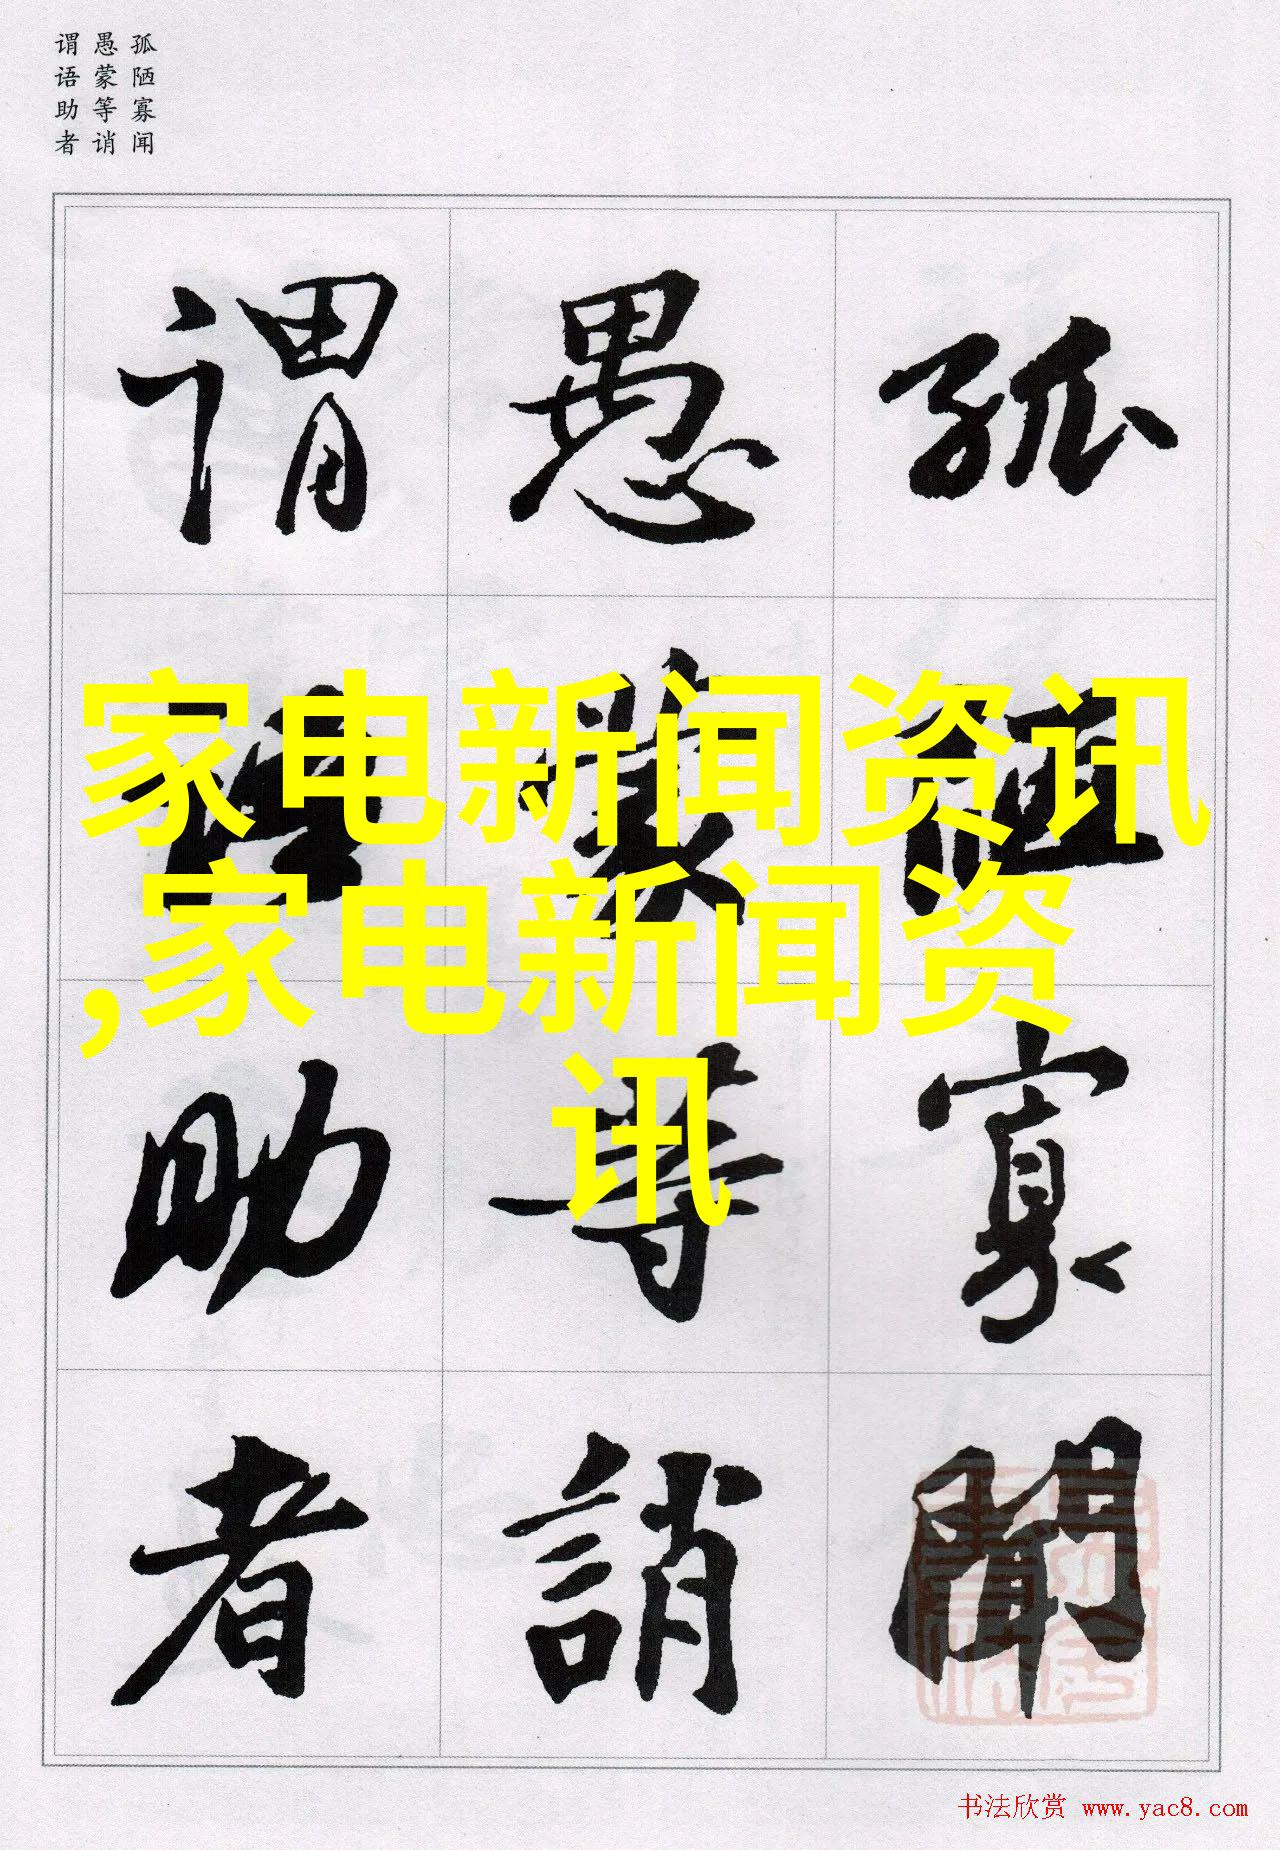 孤陋寡闻
愚蒙等诮
谓语助者
孤陋寡聞
愚蒙等誚
謂語助者
家电新闻资讯
,家电新闻资
讯
书法欣赏 www.yac8.com